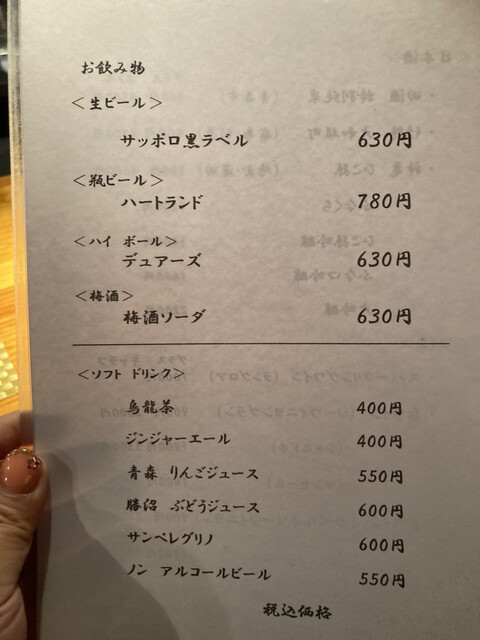 お飲み物
＜生ビール＞
サッポロ黒ラベル 630円
＜瓶ビール＞
ハートランド 780円
＜ハイ ボール＞
デュアーズ 630円
＜梅酒＞
梅酒ソーダ 630円
＜ソフト ドリンク＞
烏龍茶 400円
ジンジャーエール 400円
青森 りんごジュース 550円
勝沼 ぶどうジュース 600円
サンペレグリノ 600円
ノン アルコールビール 550円
税込価格